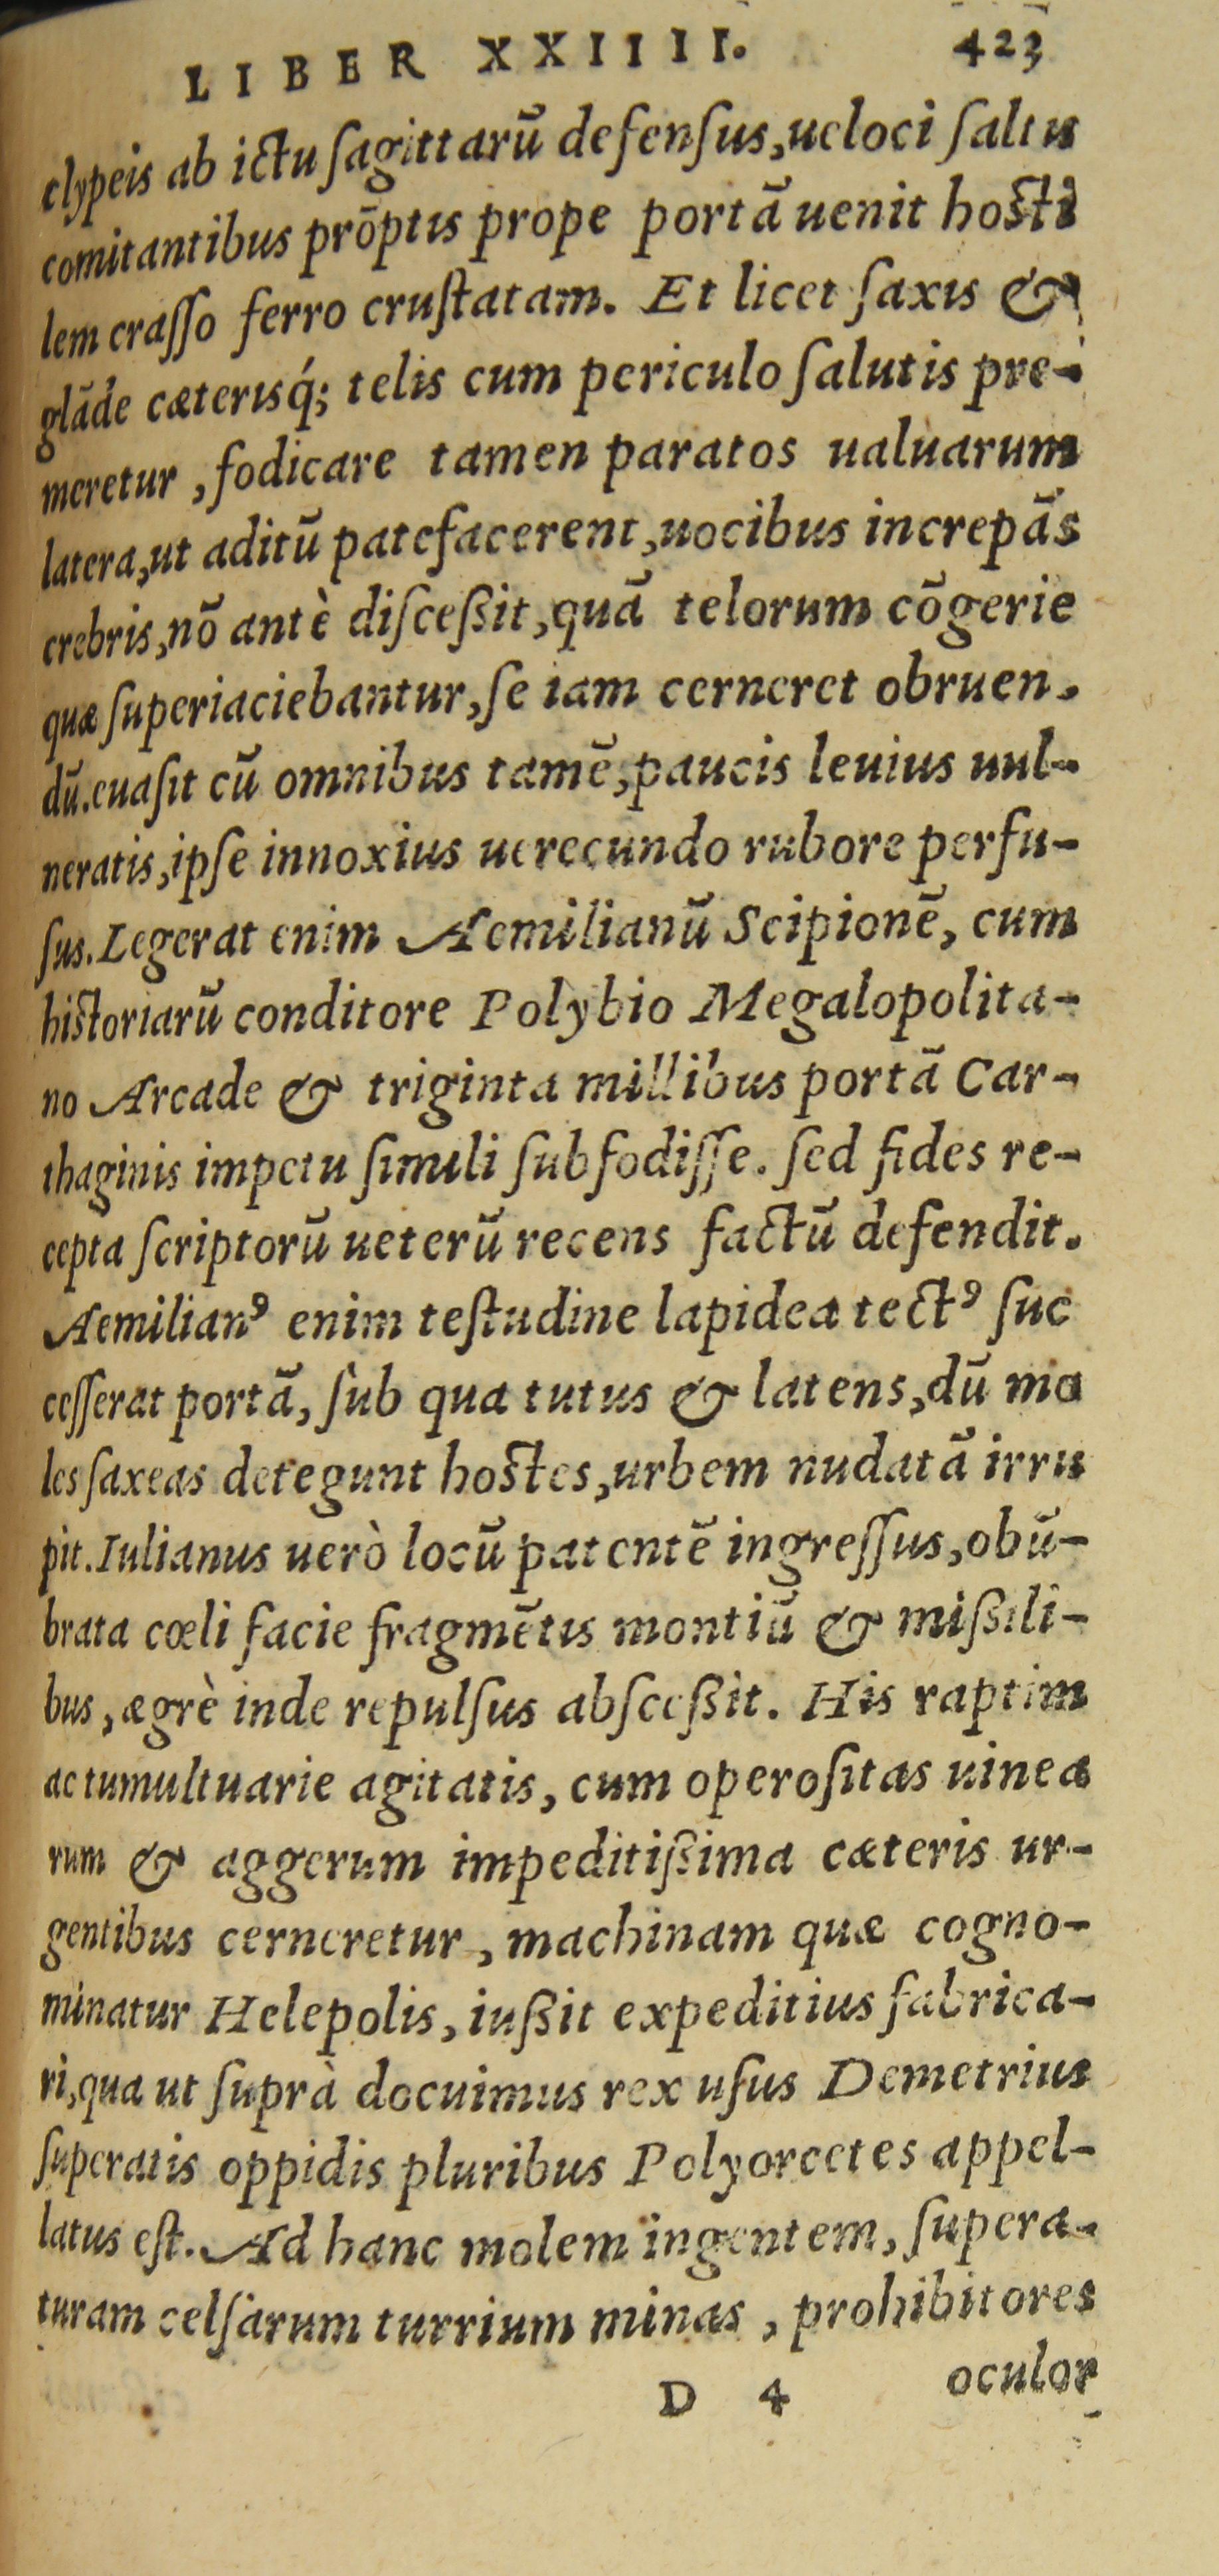 LIBER XXIIII. 423
clypeis ab ictu ſagittarū defenſus, ueloci ſaltu
comitantibus prōptis prope portā uenit hoſti
lem craſſo ferro cruſtatam. Et licet ſaxis &
glāde cæterisq́; telis cum periculo ſalutis pre-
meretur, fodicare tamen paratos ualuarum
latera, ut aditū patefacerent, uocibus increpās
crebris, nō antè diſceßit, quā telorum cōgerie
quæ ſuperiaciebantur, ſe iam cerneret obruen-
dū. euaſit cū omnibus tamē, paucis leuius uul-
neratis, ipſe innoxius uerecundo rubore perfu-
ſus. Legerat enim Aemilianū Scipionē, cum
hiſtoriarū conditore Polybio Megalopolita-
no Arcade & triginta millibus portā Car-
thaginis impetu ſimili ſubfodiſſe. ſed fides re-
cepta ſcriptorū ueterū recens factū defendit.
Aemilianꝰ enim teſtudine lapidea tectꝰ ſuc
ceſſerat portā, ſub qua tutus & latens, dū mo
les ſaxeas detegunt hoſtes, urbem nudatā irru
pit. Iulianus uerò locū patentē ingreſſus, obū-
brata cœli facie fragmētis montiū & mißili-
bus, ægrè inde repulſus absceßit. His raptim
ac tumultuarie agitatis, cum operoſitas uinea
rum & aggerum impeditißima cæteris ur-
gentibus cerneretur, machinam quæ cogno-
minatur Helepolis, iußit expeditius fabrica-
ri, qua ut ſuprà docuimus rex uſus Demetrius
ſuperatis oppidis pluribus Polyorcetes appel-
latus eſt. Ad hanc molem ingentem, ſupera-
turam celſarum turrium minas, prohibitores
D 4 oculor